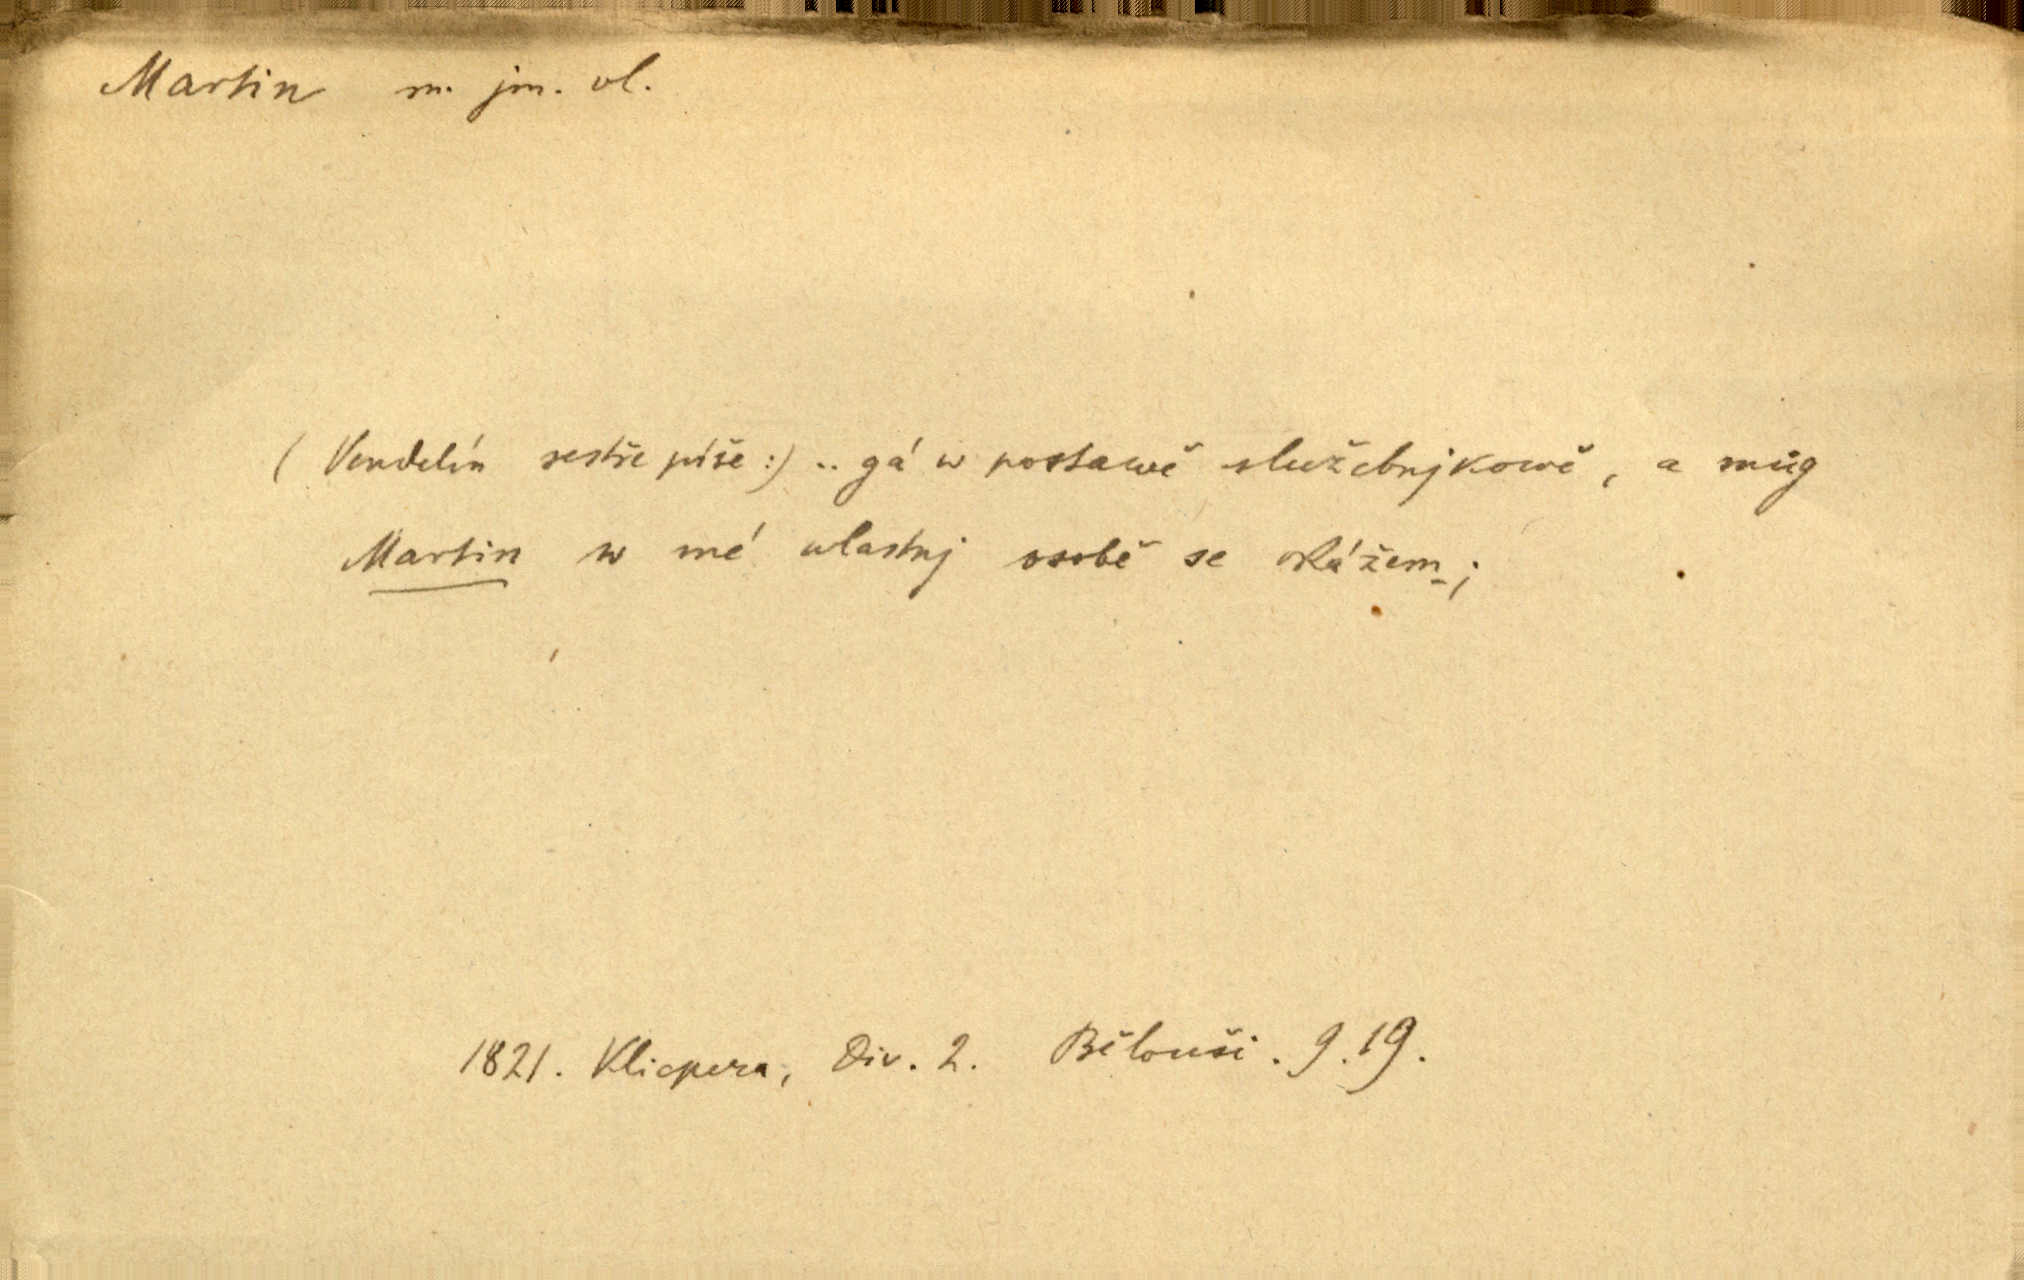 Martin m. jm. vl.
(Vendelín sestře píše:) .. gá w postawě služebnjkowě, a můg
Martin w mé wlastnj osobě se okážem;
1821. Klicpera, Div. 2. Běłouši. 9.19.